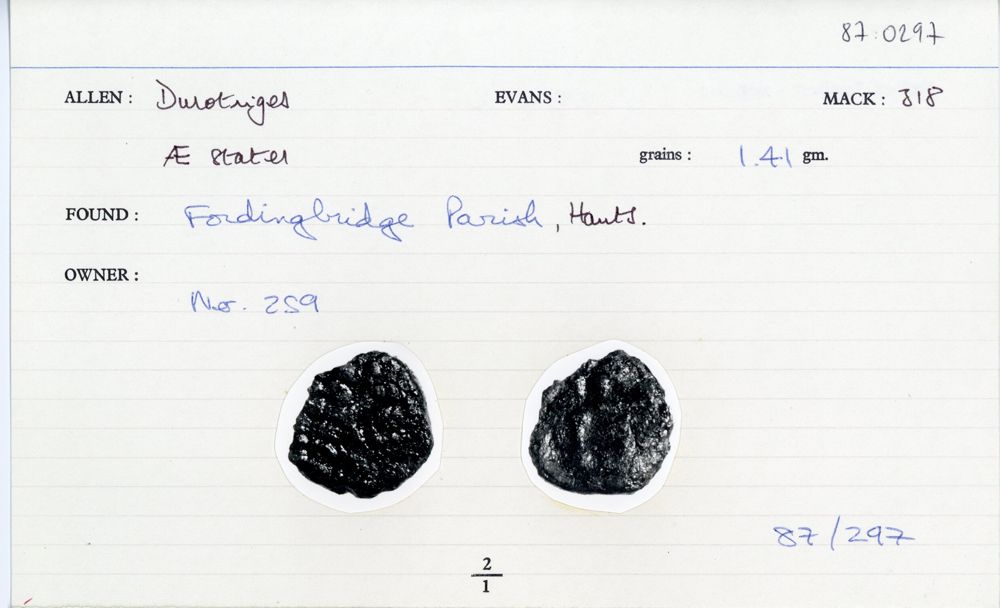 87.0297
ALLEN : Durotriges EVANS : MACK : 318
Æ stater grains : 1.41 gm.
FOUND : Fordingbridge Parish, Hants.
OWNER :
No. 259
87/297
2
1